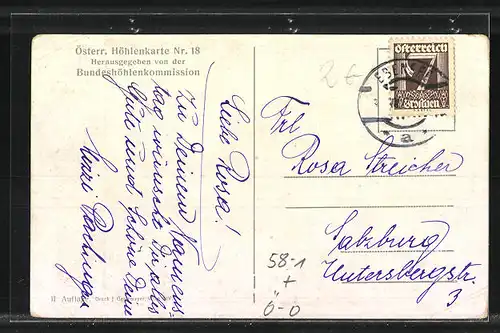 Österr. Höhlenkarte Nr. 18
Herausgegeben von der
Bundeshöhlenkommission
Liebe Rosa!
Zu Deinem Namens-
tag wünsche Dir alles
Gute und Schöne Deine
Mizzi
II Auflage
Österreich
7
Groschen
a
2 6
Frl
Rosa Streicher
Salzburg
Untersbergstr.
3
58-1
+
0-0